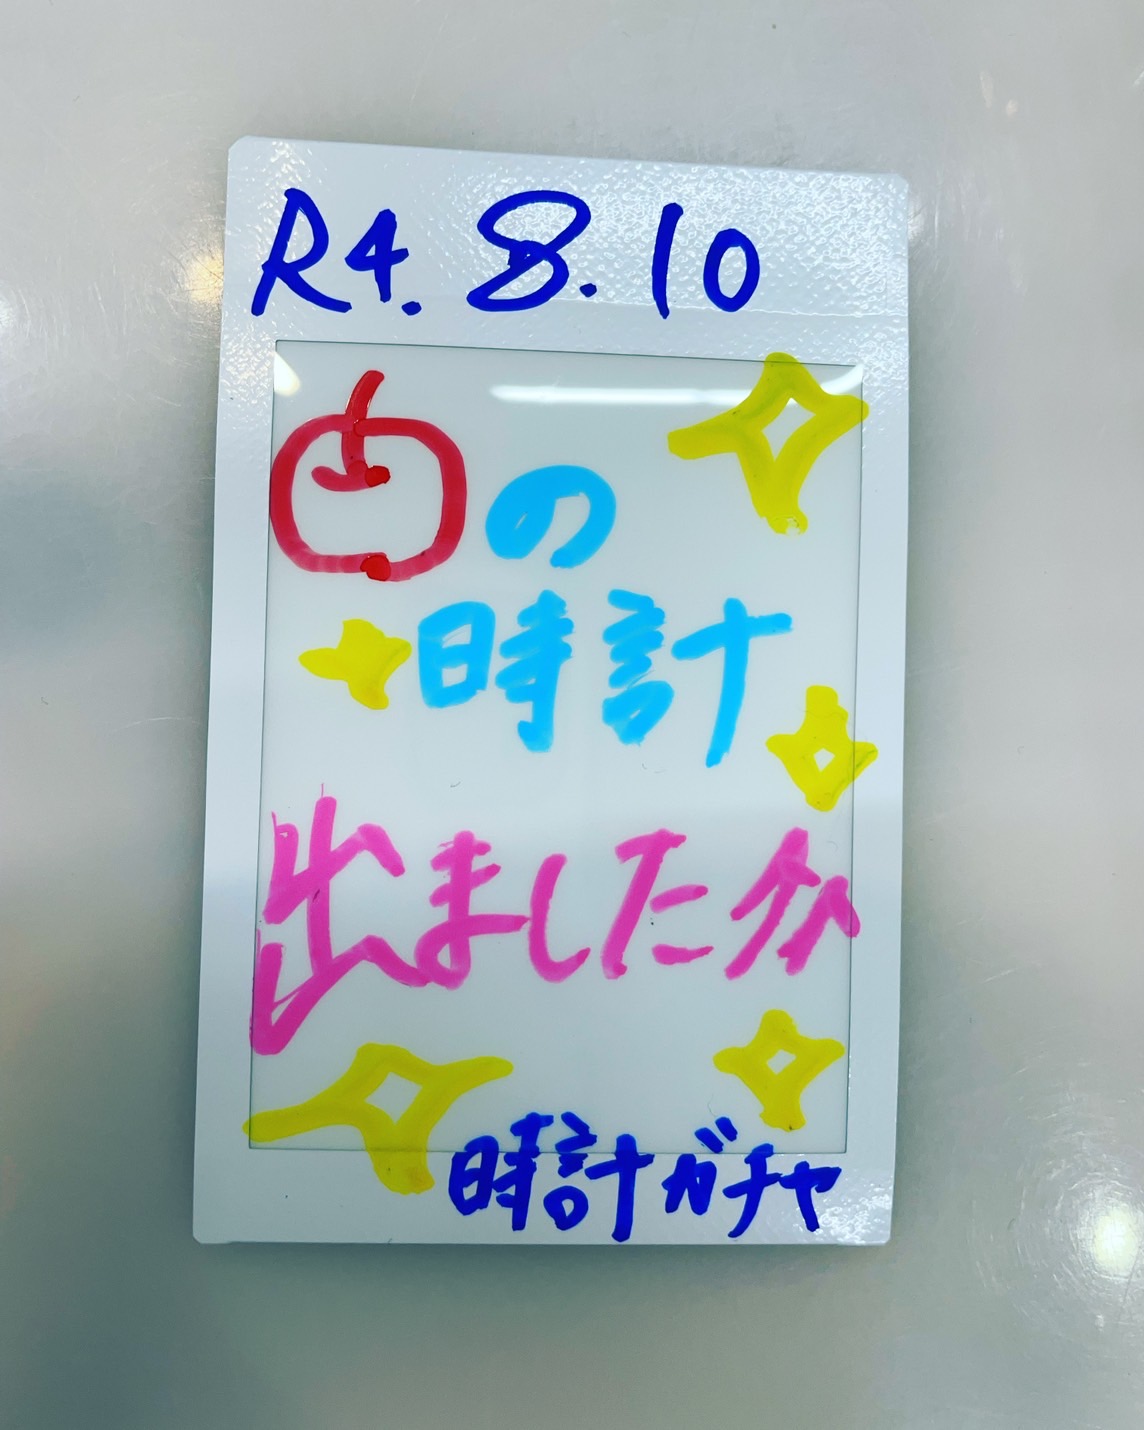 R4.8.10
の
時計
出ました
時計ガチャ